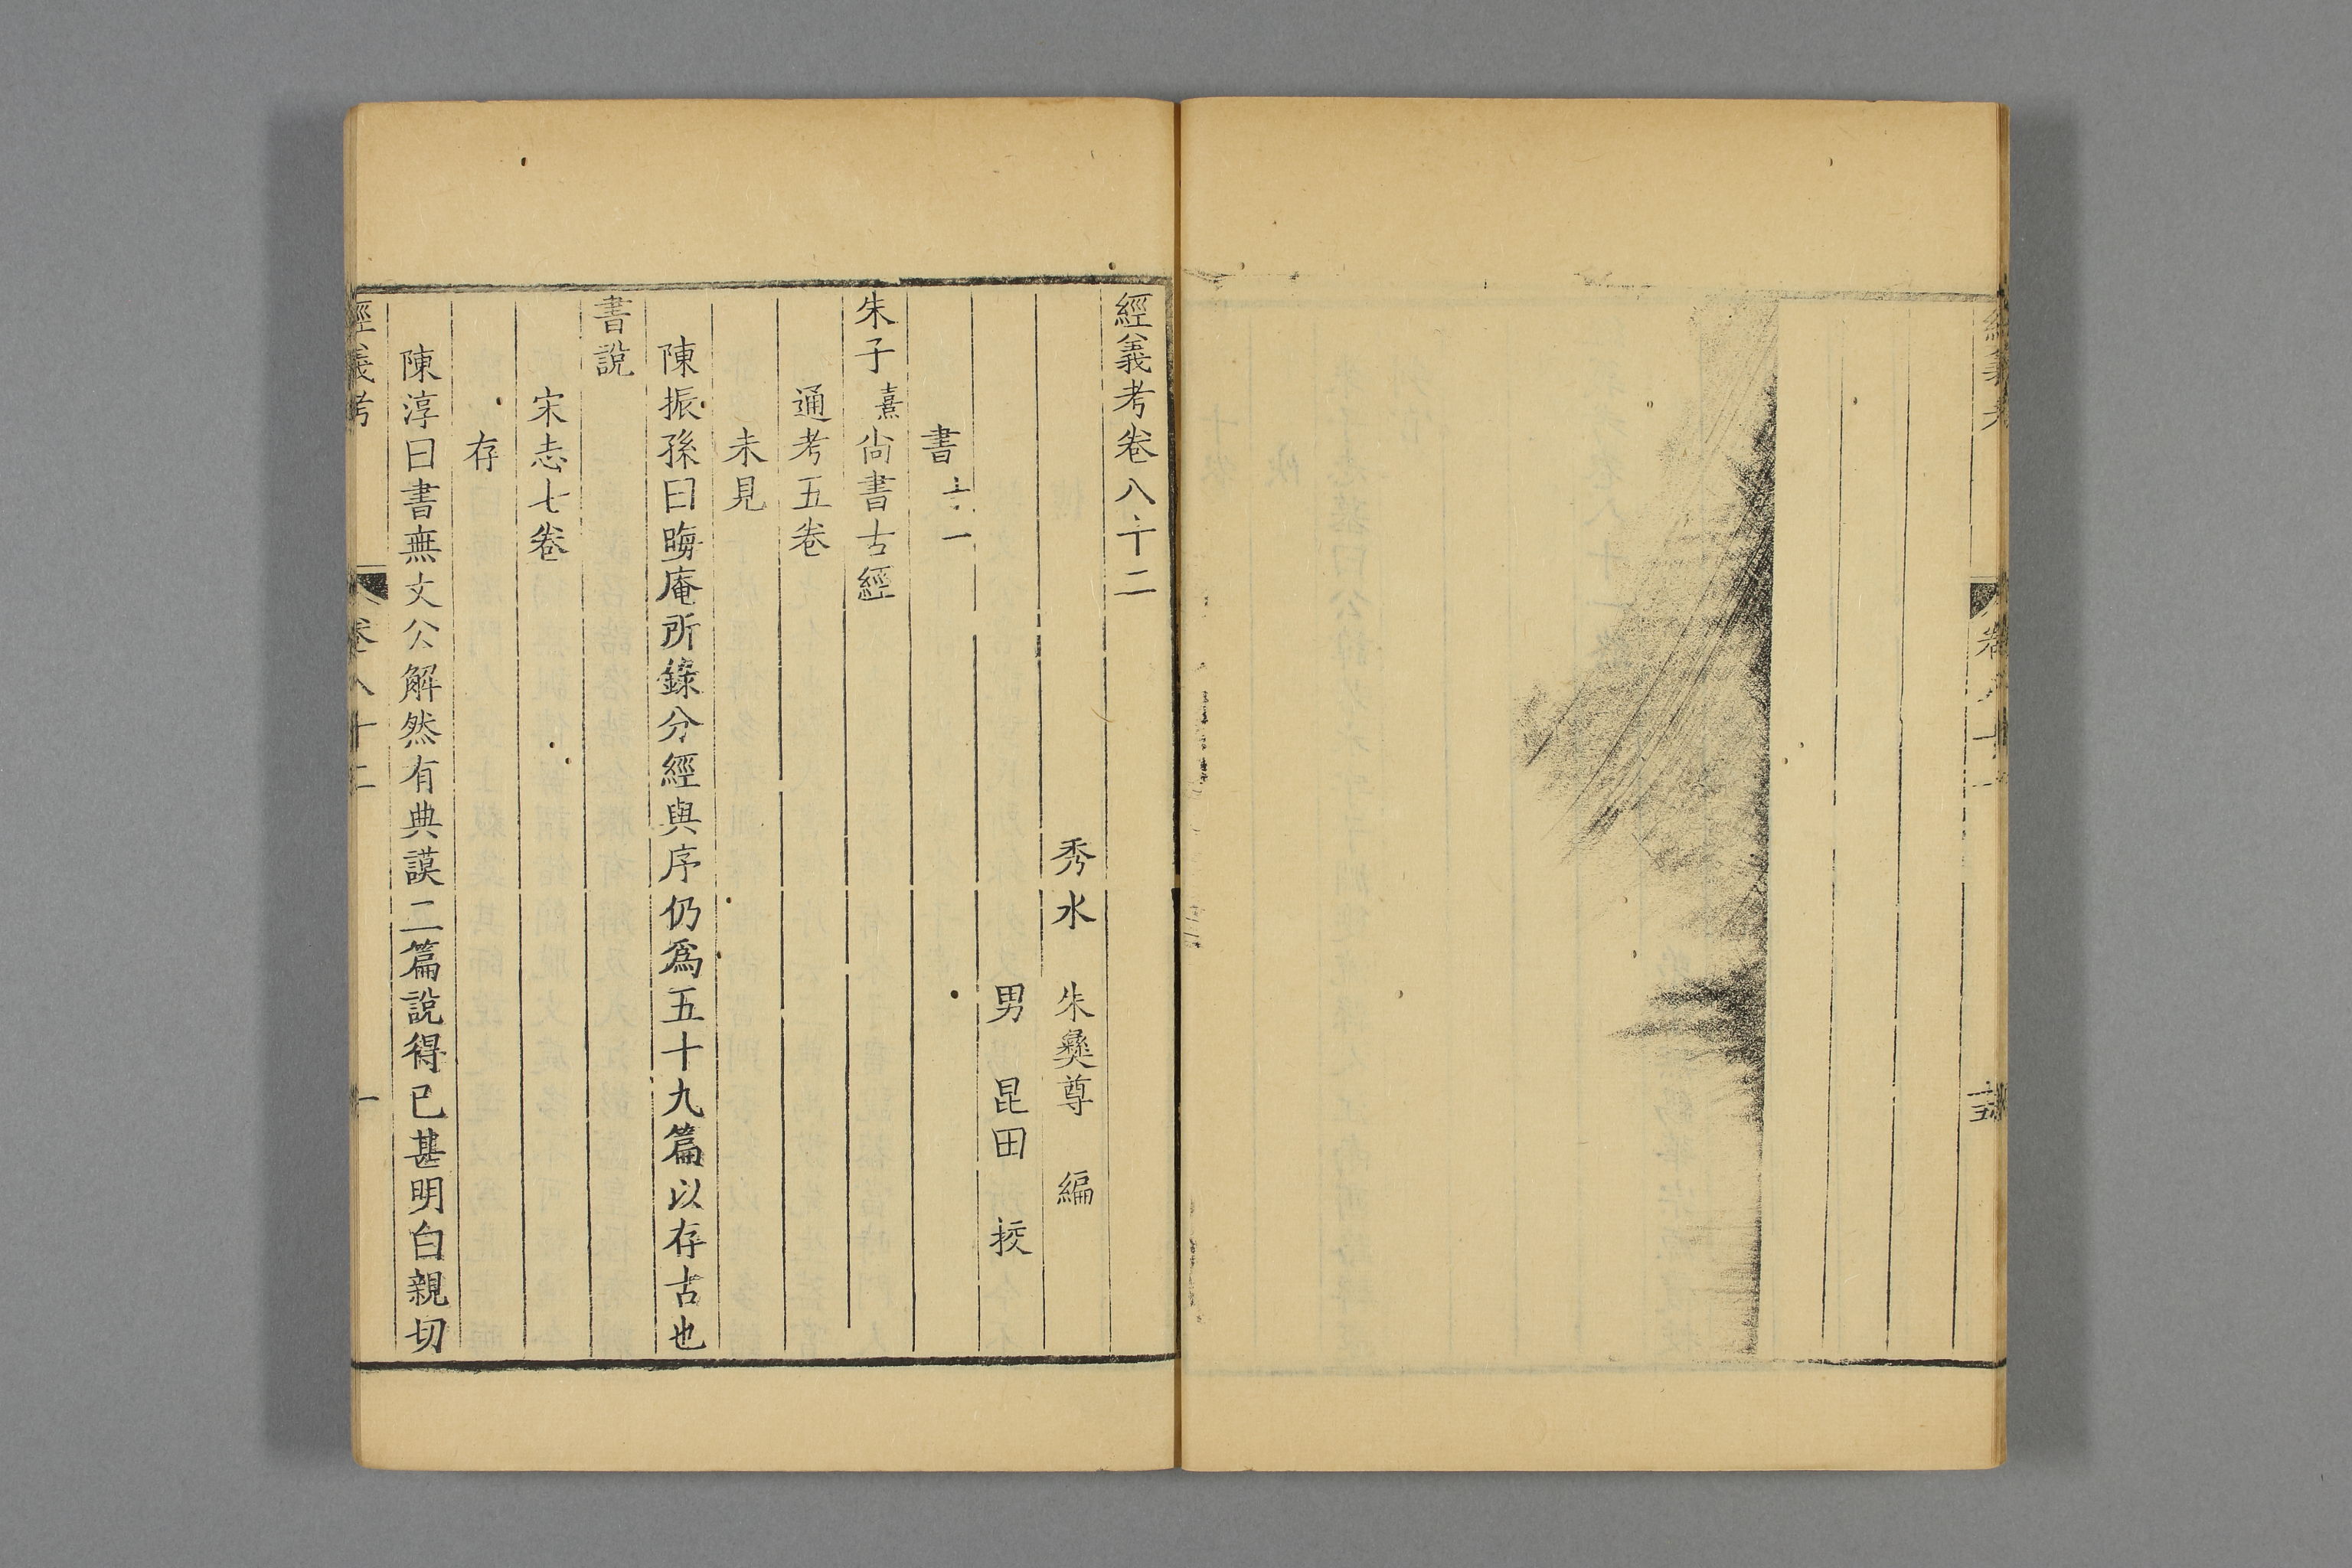 經義考
卷八十一
十五
經義考卷八十二
秀水 朱彝尊 編
男 昆田 挍
書十一
朱子熹尙書古經
通考五卷
未見
陳振孫曰晦庵所錄分經與序仍爲五十九篇以存古也
書說
宋志七卷
存
陳淳曰書無文公解然有典謨二篇說得已甚明白親切
經義考
卷八十二
一